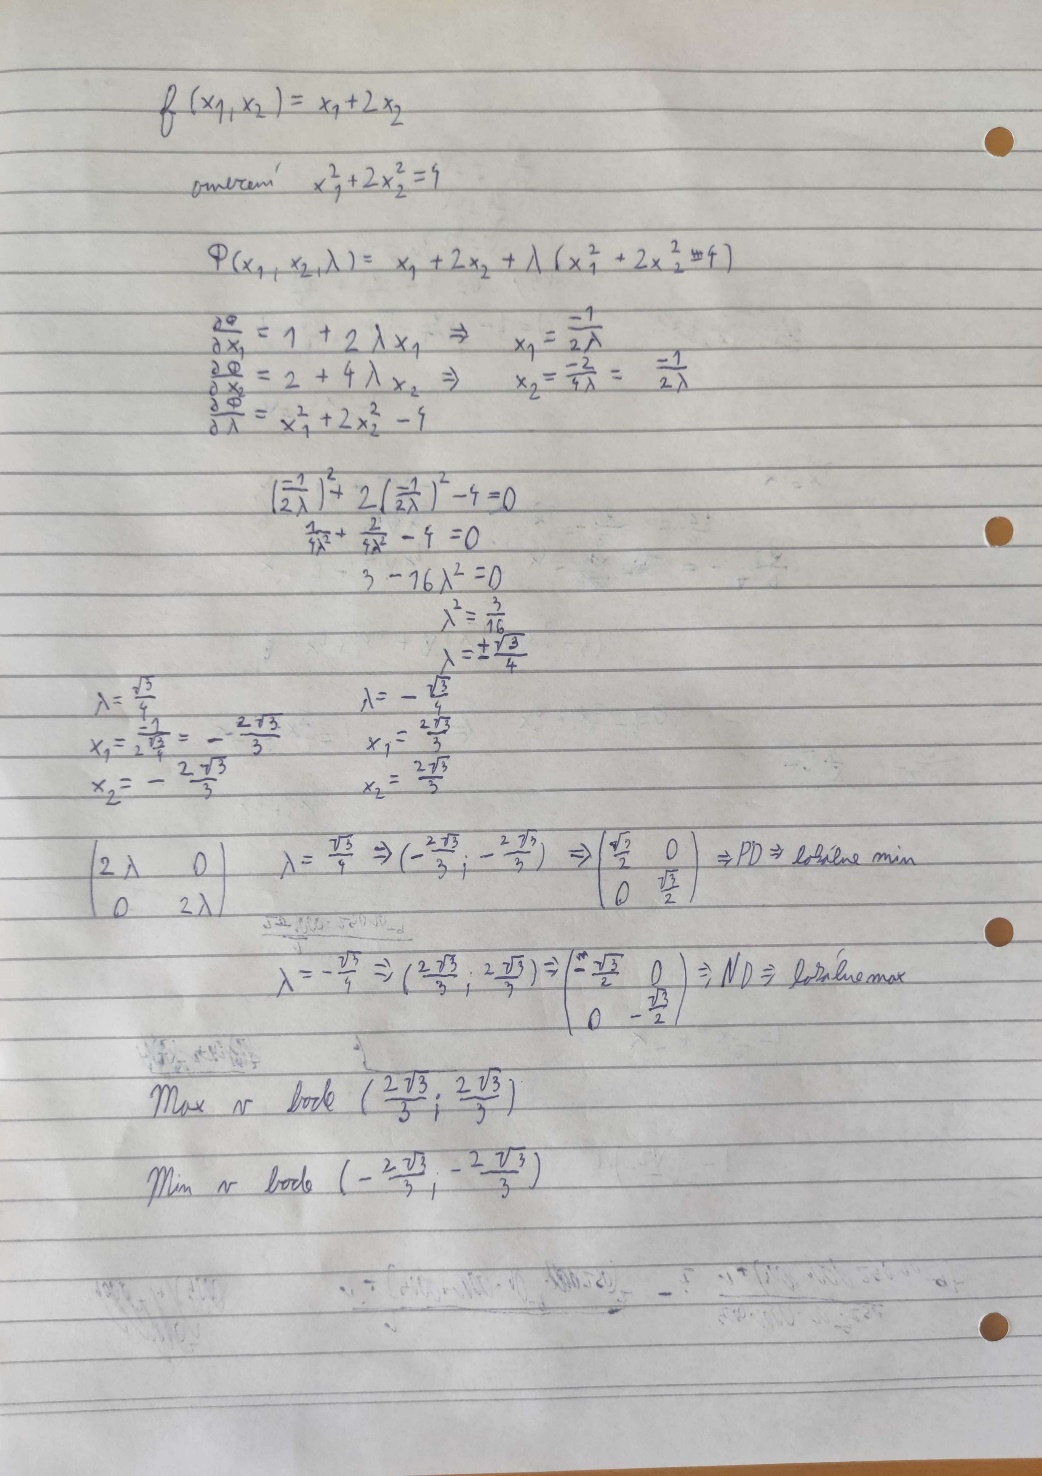 f(x₁, x₂) = x₁ + 2x₂
omezení x₁² + 2x₂² = 4
Φ(x₁, x₂, λ) = x₁ + 2x₂ + λ(x₁² + 2x₂² - 4)
∂Φ/∂x₁ = 1 + 2λx₁ ⇒ x₁ = -1/2λ
∂Φ/∂x₂ = 2 + 4λx₂ ⇒ x₂ = -2/4λ = -1/2λ
∂Φ/∂λ = x₁² + 2x₂² - 4
(-1/2λ)² + 2(-1/2λ)² - 4 = 0
1/4λ² + 2/4λ² - 4 = 0
3 - 16λ² = 0
λ² = 3/16
λ = ±√3/4
λ = √3/4 λ = -√3/4
x₁ = -1/(2 √3/4) = -2√3/3 x₁ = 2√3/3
x₂ = -2√3/3 x₂ = 2√3/3
(2λ 0) λ = √3/4 ⇒ (-2√3/3 ; -2√3/3) ⇒ (√3/2 0) ⇒ PD ⇒ lokálne min
(0 2λ) (0 √3/2)
λ = -√3/4 ⇒ (2√3/3 ; 2√3/3) ⇒ (-√3/2 0) ⇒ ND ⇒ lokálne max
(0 -√3/2)
Max v bode (2√3/3 ; 2√3/3)
Min v bode (-2√3/3 ; -2√3/3)